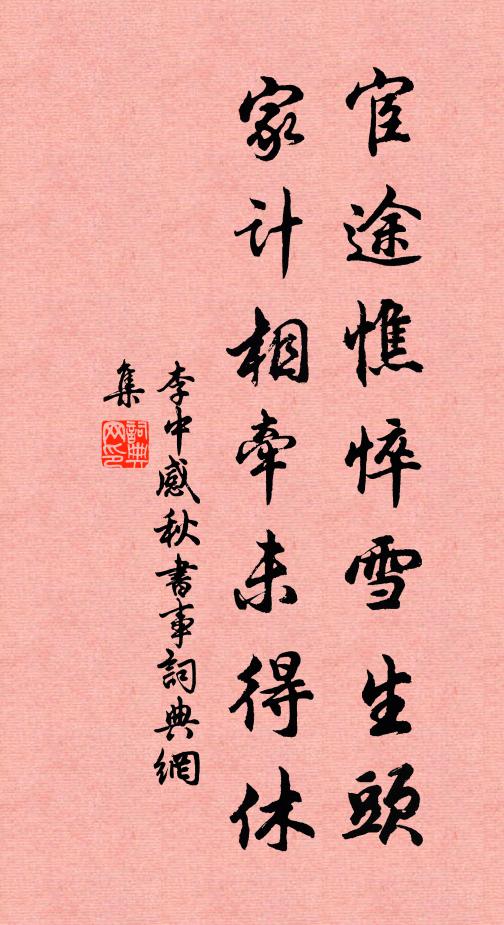 宦途憔悴雪生頭
家计相牽未得休
李中感秋書事詞典網
集
詞典
网印